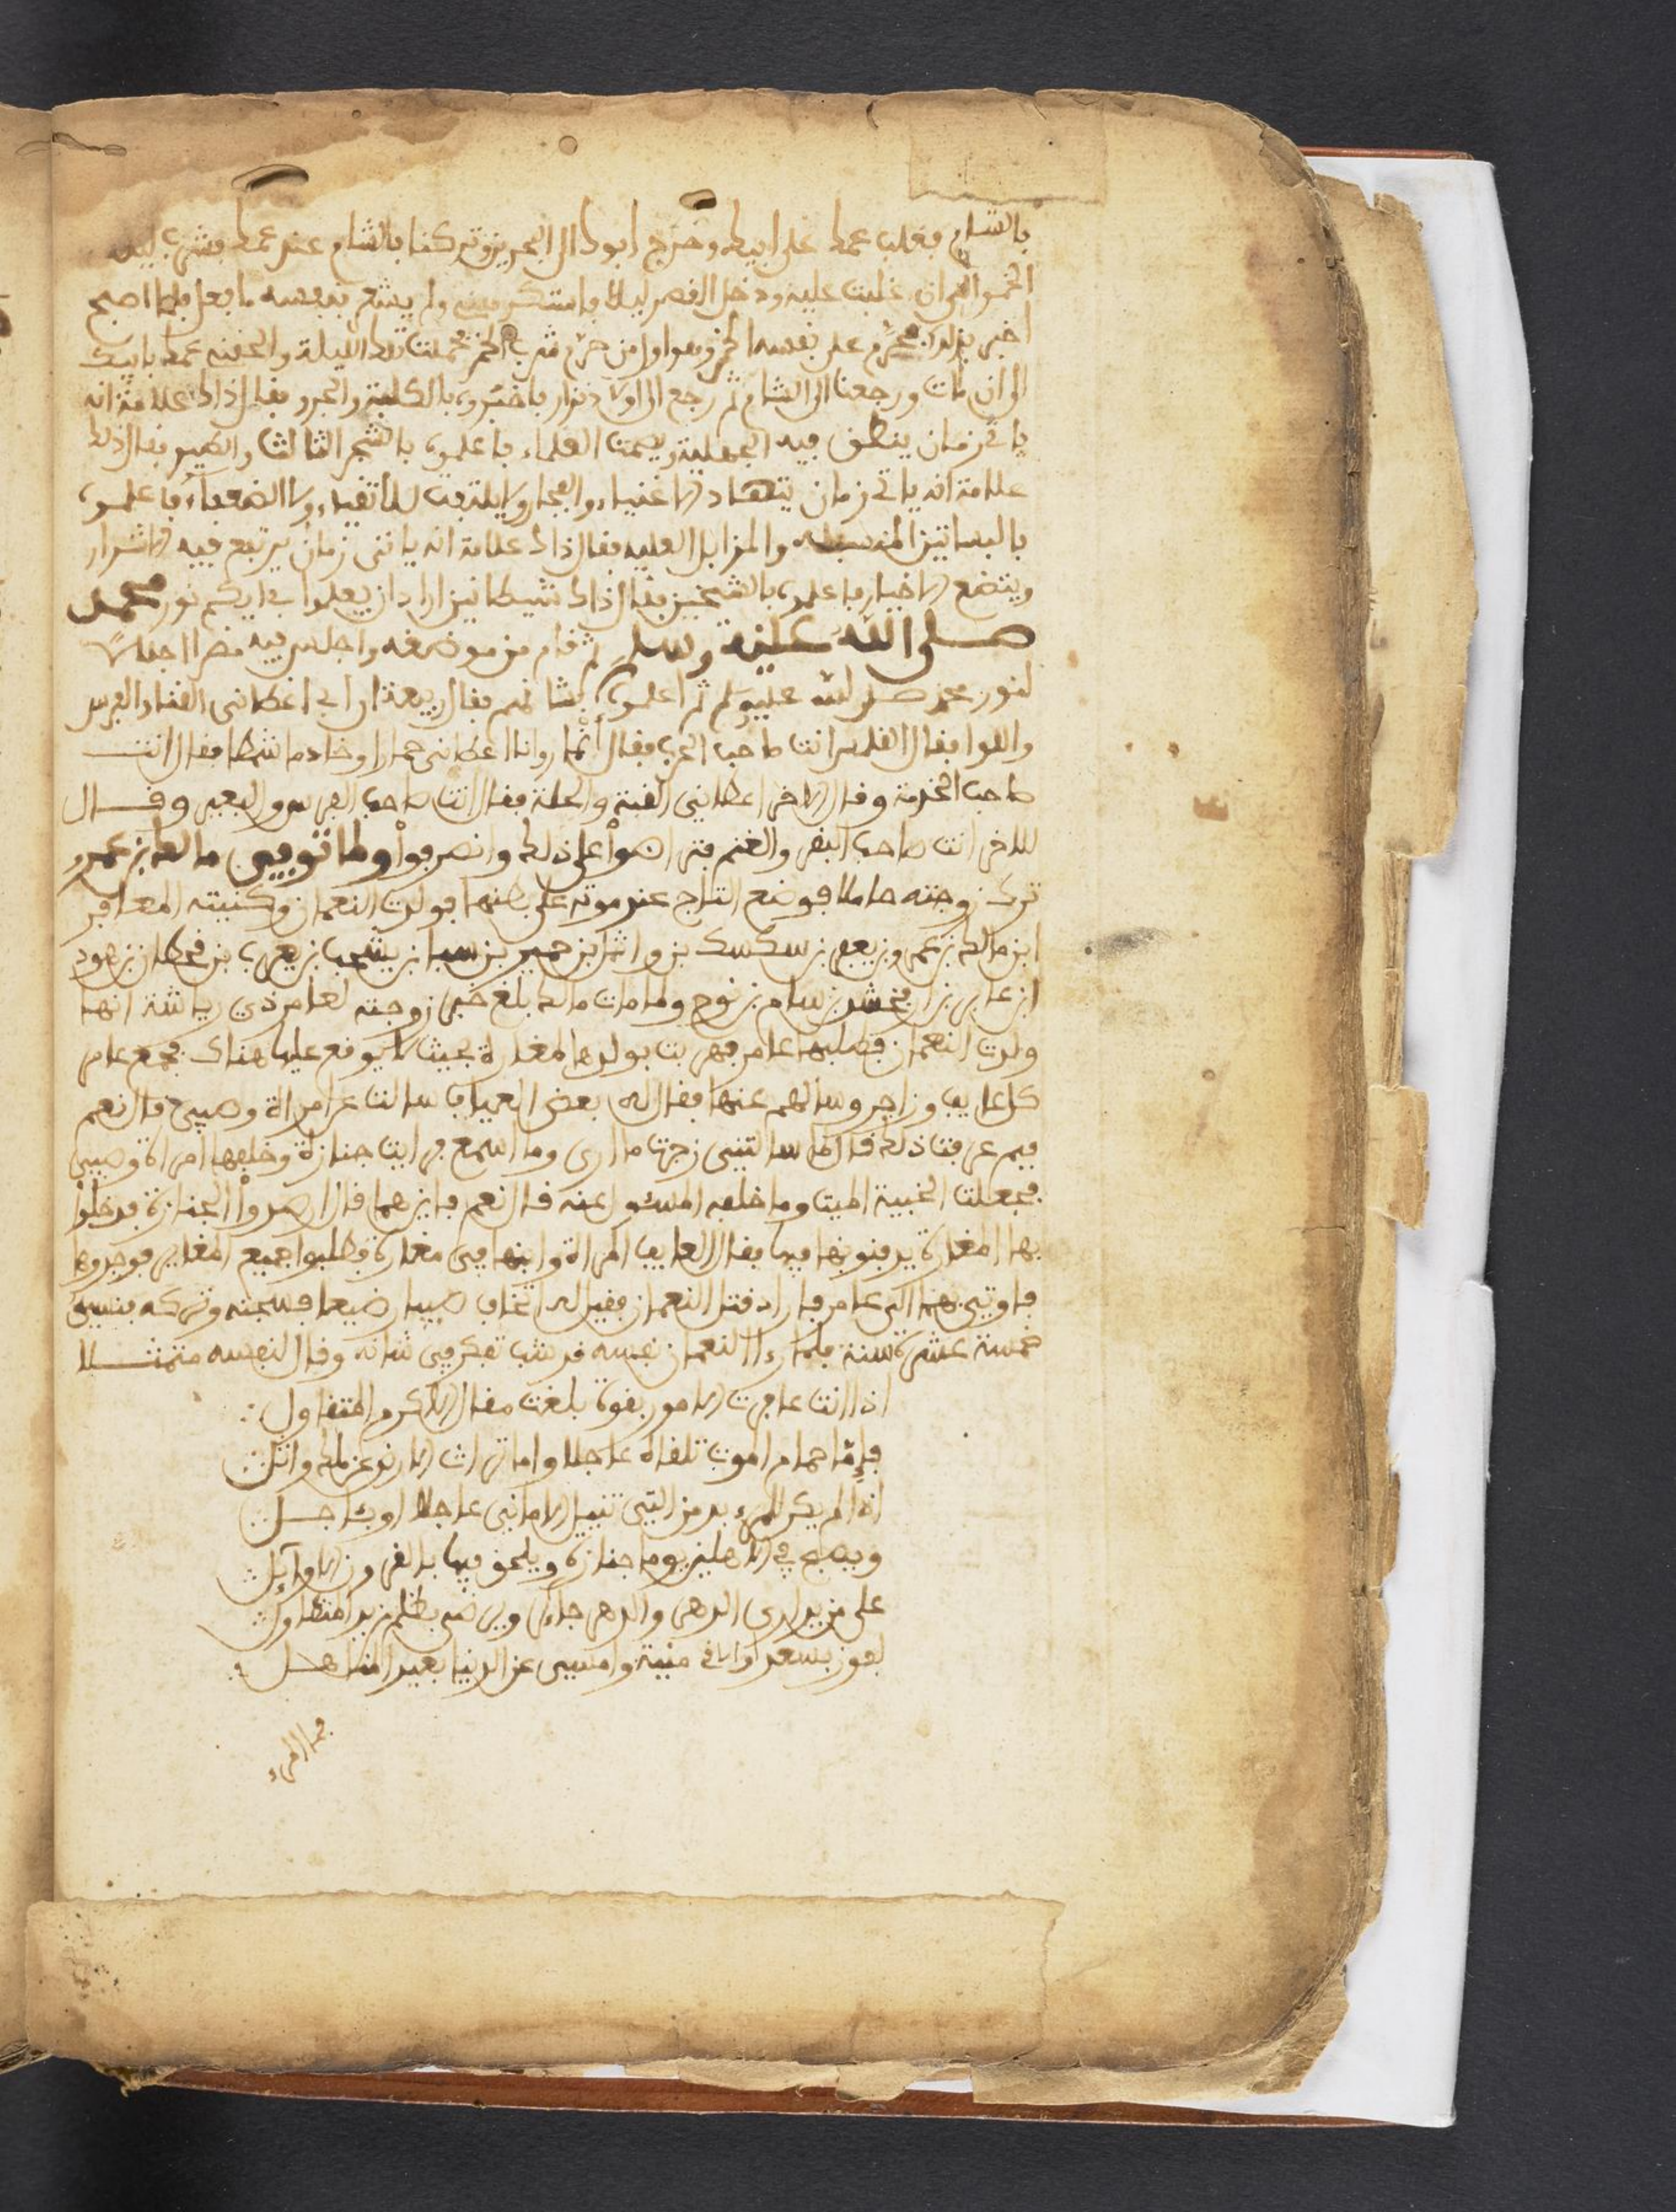 بالشام فغلب عمك على ابيك وخرج ابوك الى البحرين وتركنا بالشام عند عمك فشرب ليلة
الخمر الى ان غلبت عليه ودخل القصر ليلا فاستكرهني ولم يشعر بنفسه ما فعل فلما اصبح
اخبر بذلك فحرم على نفسه الخمر وهو اول من حرم شرب الخمر فحملت تلك الليلة والحقنه عمك بابيك
الى ان مات ورجعنا الى الشام ثم رجع الى اولاد نزار فاخبروه بالكلبة والجرو فقال ذاك علامة انه
ياتي زمان ينطق فيه الجهلة ويصمت العلماء فاعلموه بالشجر الثالث والطير فقال ذلك
علامة انه ياتي زمان الاغنياء والفجار ولا يلتفت للاتقياء ولا الضعفاء فاعلموه
بالبساتين والمزابل العليه فقال ذاك علامة انه ياتي زمان يرتفع فيه الاشرار
ويتضع الاخيار فاعلموه بالشيخين فقال ذاك شيطانين ارادا ان يعلموا في ايكم نور محمد
صلى الله عليه وسلم ثم قام من موضعه واجلس فيه مضرا اجلالا
لنور محمد صلى الله عليه وسلم ثم اعلموه بشانهم فقال ربيعة ان ابي اعطاني القنا والفرس
والقوا فقال القلمس انت صاحب الحرب فقال انمار وانا اعطاني حمارا وخادما شمطا فقال انت
صاحب الخدمة وقال الاخر اعطاني القبة والحلة فقال انت صاحب الفرس والبعير وقال
للاخر انت صاحب البقر والغنم فتراضوا على ذلك وانصرفوا ولما توفي مالك بن عمرو
ترك زوجته حاملا فوضع التاج عند موته على بطنها فولدت النعمان وكنيته المعافر
ابن مالك بن عمرو بن يعفر بن سكسك بن واثل بن حمير بن سبا بن يشجب بن يعرب بن قحطان بن هود
ابن عابر بن ارفخشد بن سام بن نوح ولما مات مالك بلغ خبر زوجته لعامر ذي رياش انها
ولدت النعمان فطلبها عامر فهربت بولدها لمغارة بحيث لا يوقع عليها هناك فجمع عامر
كل عايف وزاجر وسالهم عنها فقال له بعض العياف سالت عن امراة وصبي قال نعم
فبم عرفت ذلك قال لما سالتني زجرت ما ارى وما اسمع فرايت جنازة وخلفها امراة وصبي
فجعلت الخبية الميت وما خلفه المسئول عنه قال نعم فاين هما قال اقصدوا الجنازة فدخلوا
بها المغارة يدفنونها فيها فقال العايف المراة وابنها في مغارة فطلبوا جميع المغاير فوجدوها
فاوتي بهما الى عامر فاراد قتل النعمان فقيل له اتخاف صبيا رضيعا فسجنه وتركه فنسي
خمسة عشرة سنة فلما راا النعمان نفسه قد شب تفكر في شانه وقال لنفسه متمثلا
اذا انت عافرت الامور بقوة بلغت مقال الاكرم المتقاول
فاما حمام الموت تلقاه عاجلا واما تراث الا
اذا لم يكن للمرء بد من التي تنيل الاماني عاجلا او باجل
ويصبح في الاهلين يوما جنازة ويلحق فيها بالقرون الاوايل
على من يد لدى الدهر والدهر جاير ويرضى بظلم من يد المتطاول
يفوز بسعد او يلاقي منيته وامسى عن الدنيا بعيد المناهل
فما المرء